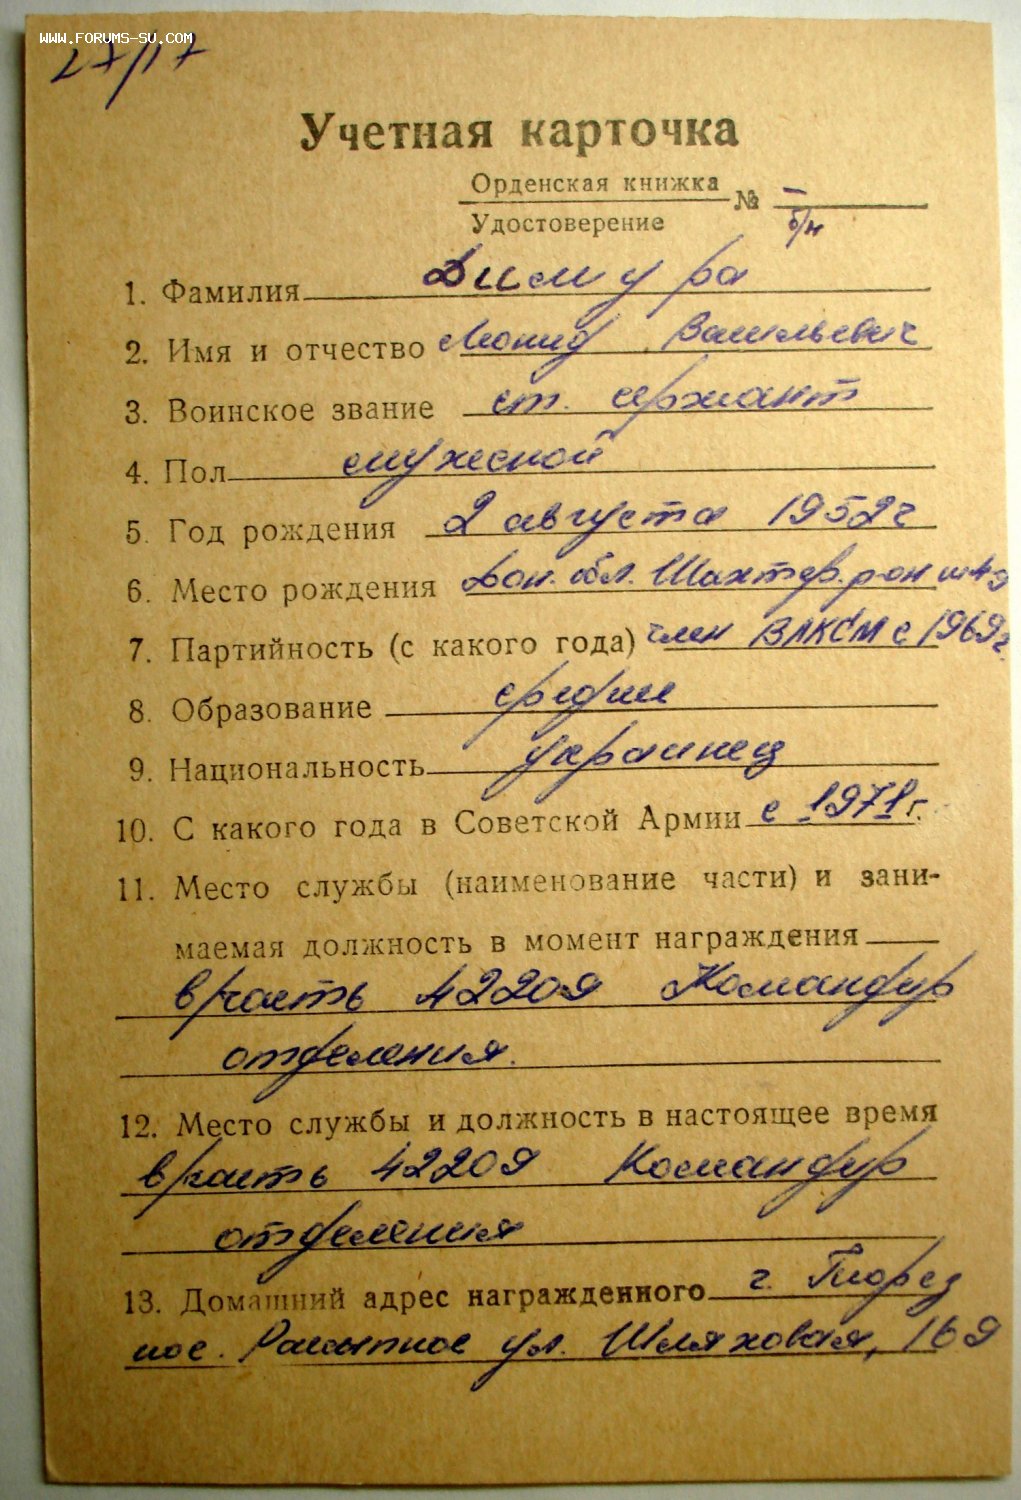 www.forums-su.com
27/17
Учетная карточка
Орденская книжка
Удостоверение № — б/н
1. Фамилия Димура
2. Имя и отчество Леонид Васильевич
3. Воинское звание ст. сержант
4. Пол мужской
5. Год рождения 2 августа 1952 г
6. Место рождения Дон. обл. Шахтер. р-он
7. Партийность (с какого года) член ВЛКСМ с 1969 г.
8. Образование средн
9. Национальность украинец
10. С какого года в Советской Армии с 1971 г.
11. Место службы (наименование части) и зани-
маемая должность в момент награждения
в/часть 42209 Командир
отделения.
12. Место службы и должность в настоящее время
в/часть 42209 Командир
отделения
13. Домашний адрес награжденного г. Торез
пос. ул. Шляховая, 169